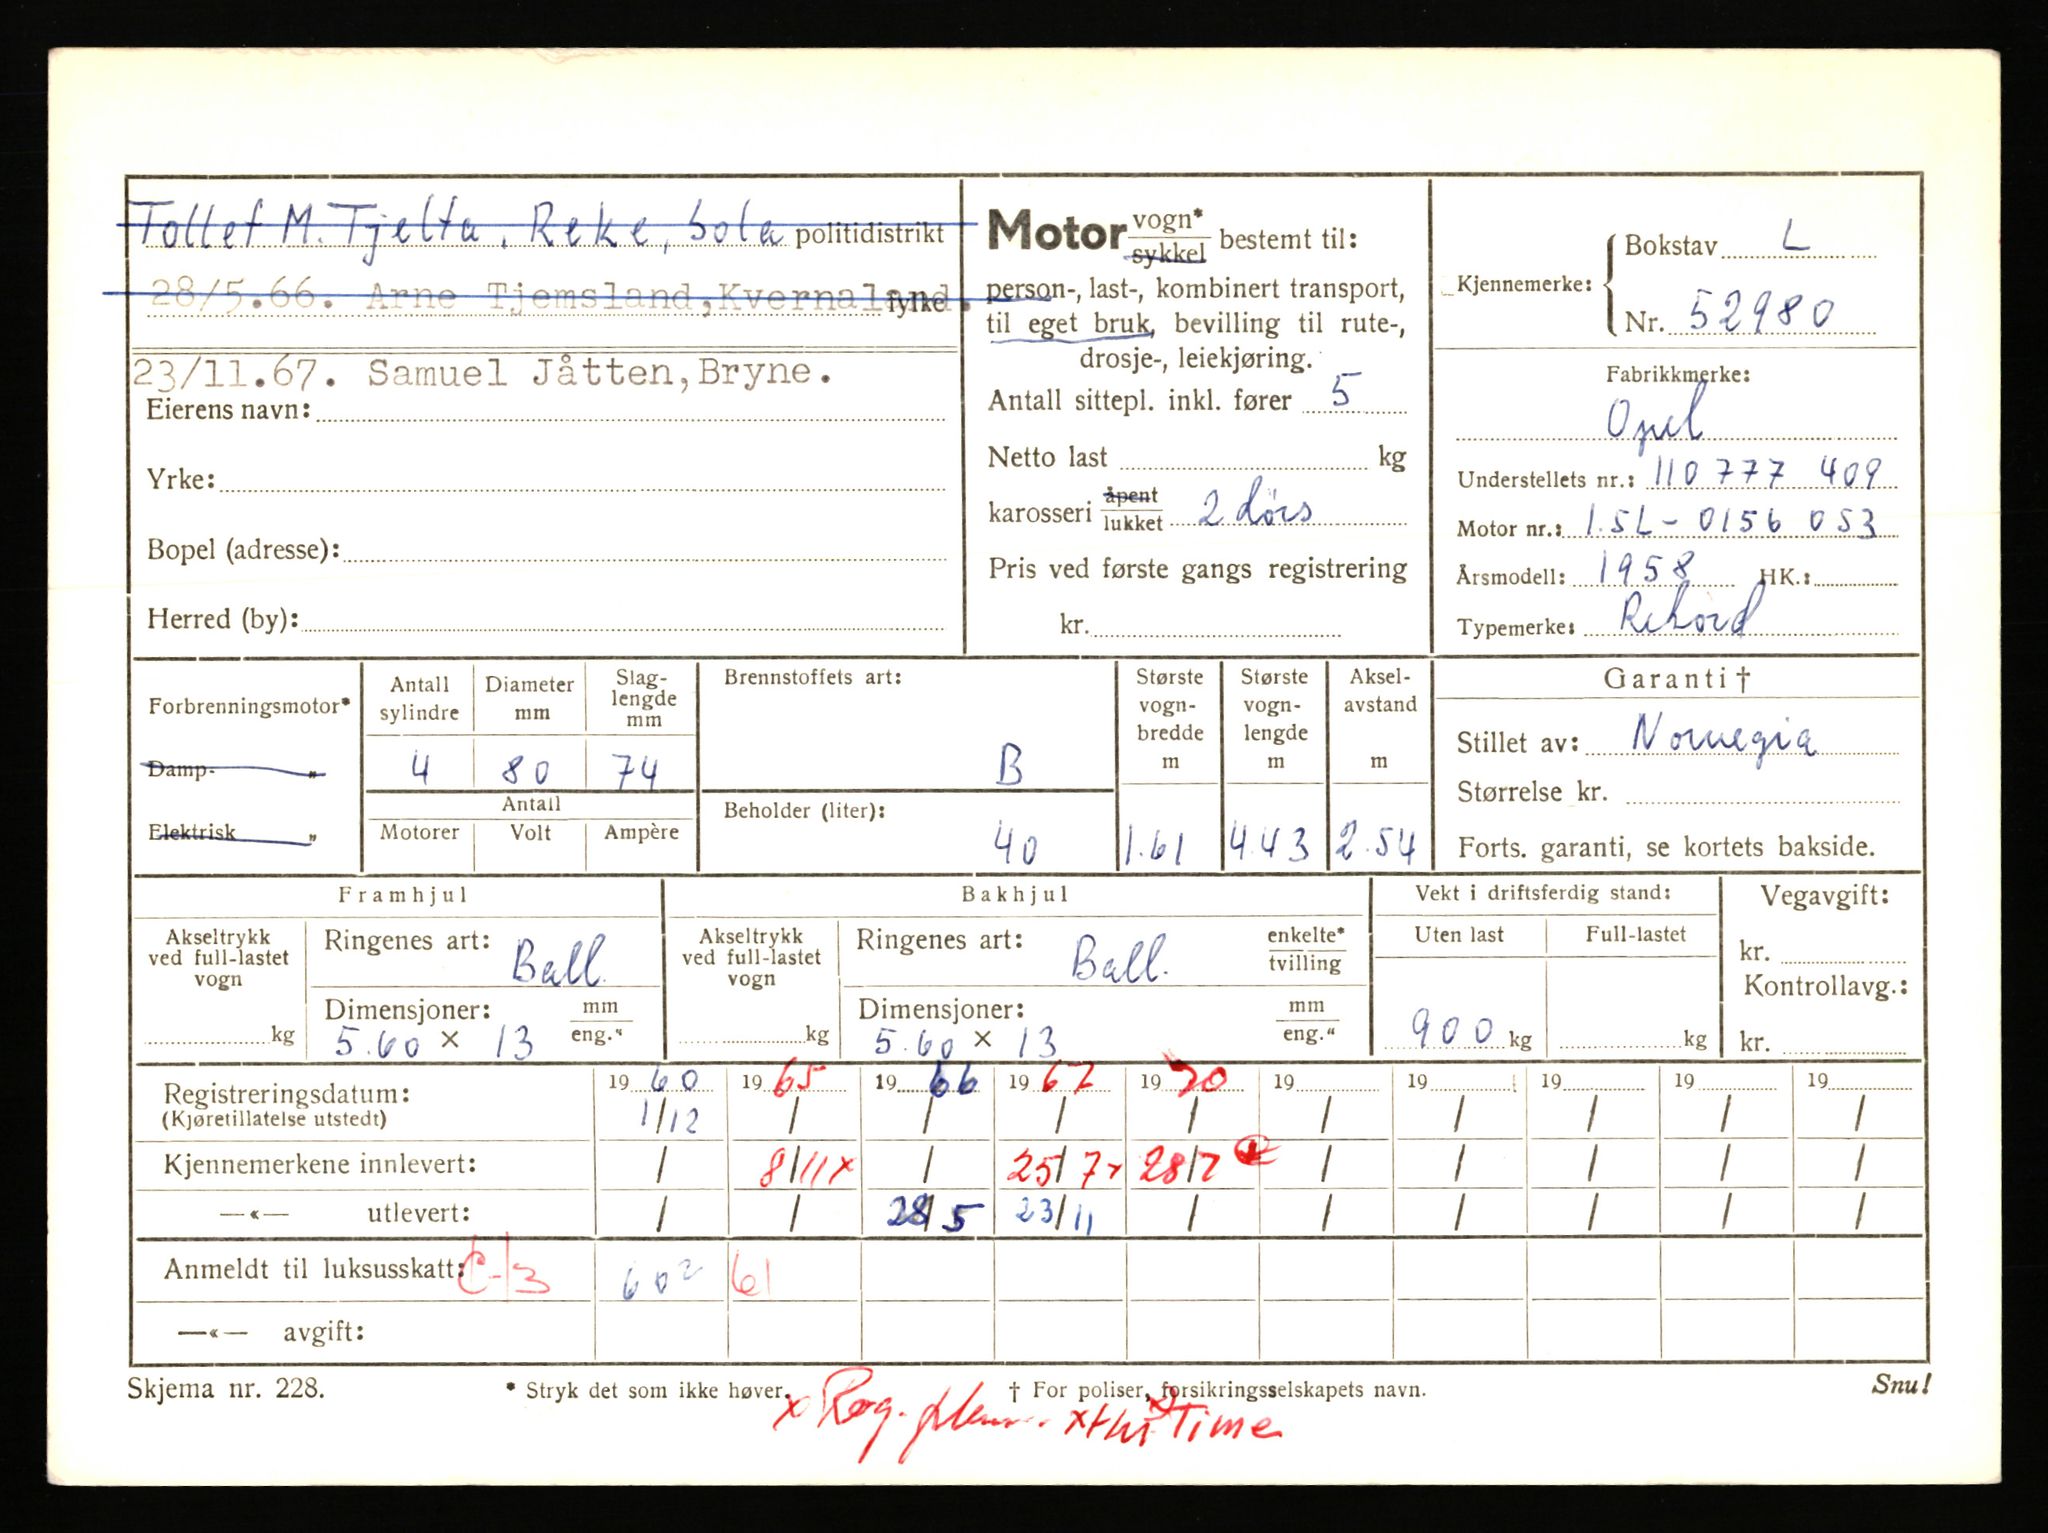 Tollef M. Tjelta, Reke, Sola politidistrikt
28/5.66. Arne Tjemsland, Kvernaland. fylke
23/11.67. Samuel Jåtten, Bryne.
Eierens navn:
Yrke:
Bopel (adresse):
Herred (by):
Motor vogn* / sykkel bestemt til:
person-, last-, kombinert transport,
til eget bruk, bevilling til rute-,
drosje-, leiekjøring.
Antall sittepl. inkl. fører 5
Netto last kg
karosseri åpent / lukket 2 dørs
Pris ved første gangs registrering
kr.
Kjennemerke: Bokstav L
Nr. 52980
Fabrikkmerke:
Opel
Understellets nr.: 110777 409
Motor nr.: 1.5L-0156 053
Årsmodell: 1958 HK.:
Typemerke: Rekord
Forbrenningsmotor*
Damp- „
Elektrisk „
Antall sylindre 4
Diameter mm 80
Slag-lengde mm 74
Antall
Motorer Volt Ampère
Brennstoffets art: B
Beholder (liter): 40
Største vogn-bredde m 1.61
Største vogn-lengde m 4.43
Aksel-avstand m 2.54
Garanti †
Stillet av: Norvegia
Størrelse kr.
Forts. garanti, se kortets bakside.
Framhjul
Akseltrykk ved full-lastet vogn kg
Ringenes art: Ball.
Dimensjoner: mm / eng.“
5.60 x 13
Bakhjul
Akseltrykk ved full-lastet vogn kg
Ringenes art: Ball. enkelte* / tvilling
Dimensjoner: mm / eng.“
5.60 x 13
Vekt i driftsferdig stand:
Uten last Full-lastet
900 kg kg
Vegavgift:
kr.
Kontrollavg.:
kr.
Registreringsdatum: 1960 1965 1966 1967 1970 19 19 19 19 19
(Kjøretillatelse utstedt) 1/12 / / / / / / / / /
Kjennemerkene innlevert: / 8/11 x / 25/7 x 28/7 / / / / /
—«— utlevert: / / 28/5 23/11 / / / / / /
Anmeldt til luksusskatt: C-13 60² 61
—«— avgift:
Skjema nr. 228. * Stryk det som ikke høver. † For poliser, forsikringsselskapets navn. Snu!
x Reg. Time